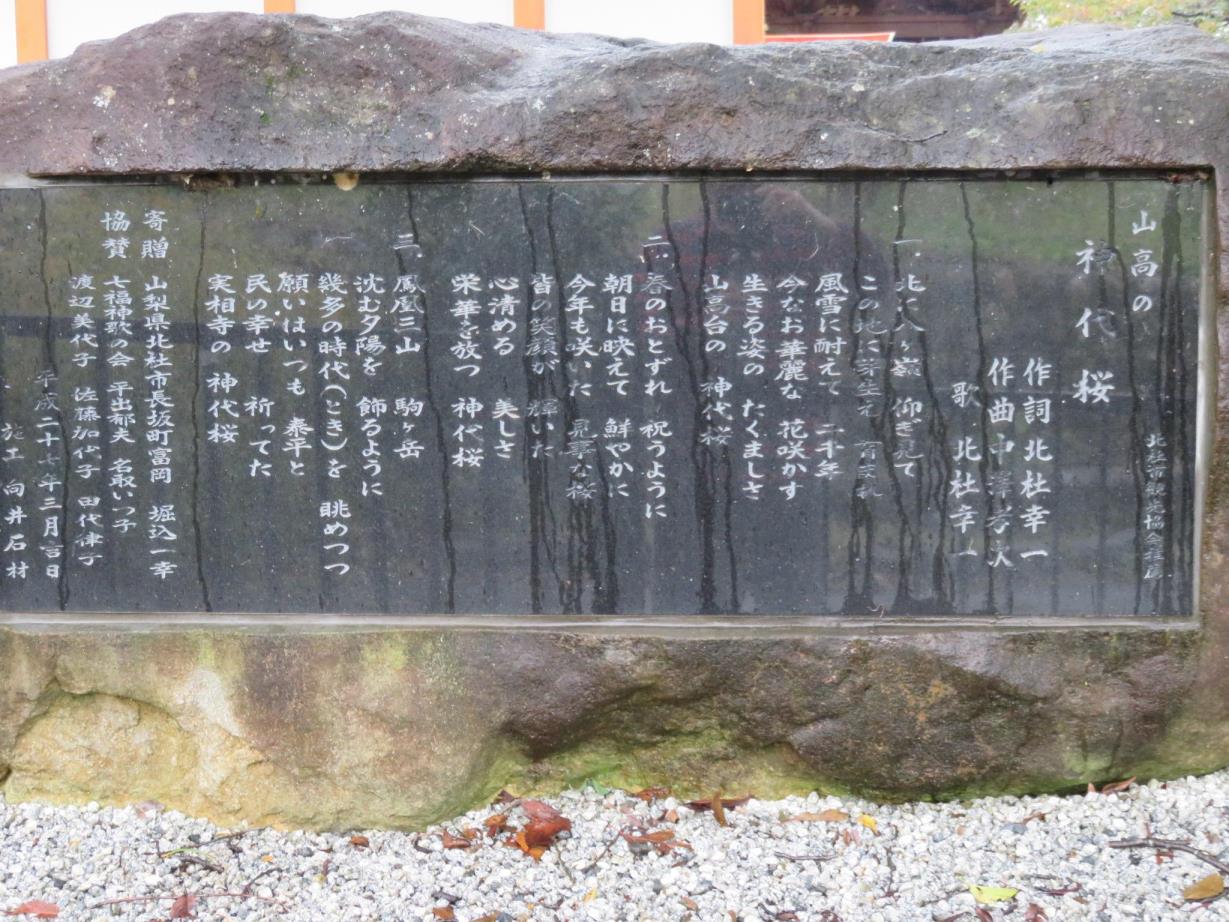 山高の
神代桜
北杜市観光協会推薦
作詞 北杜幸一
作曲 中澤孝次
歌 北杜幸一
一、北に八ヶ嶺 仰ぎ見て
この地に芽生え 育まれ
風雪に耐えて 二千年
今なお華麗な 花咲かす
生きる姿の たくましさ
山高台の 神代桜
二、春のおとずれ 祝うように
朝日に映えて 鮮やかに
今年も咲いた 見事な桜
皆の笑顔が 輝いた
心清める 美しさ
栄華を放つ 神代桜
三、鳳凰三山 駒ヶ岳
沈む夕陽を 飾るように
幾多の時代(とき)を 眺めつつ
願いはいつも 泰平と
民の幸せ 祈ってた
実相寺の 神代桜
寄贈 山梨県北杜市長坂町富岡 堀込一幸
協賛 七福神歌の会 平出郁夫 名取いつ子
渡辺美代子 佐藤加代子 田代律子
平成二十七年三月吉日
施工 向井石材